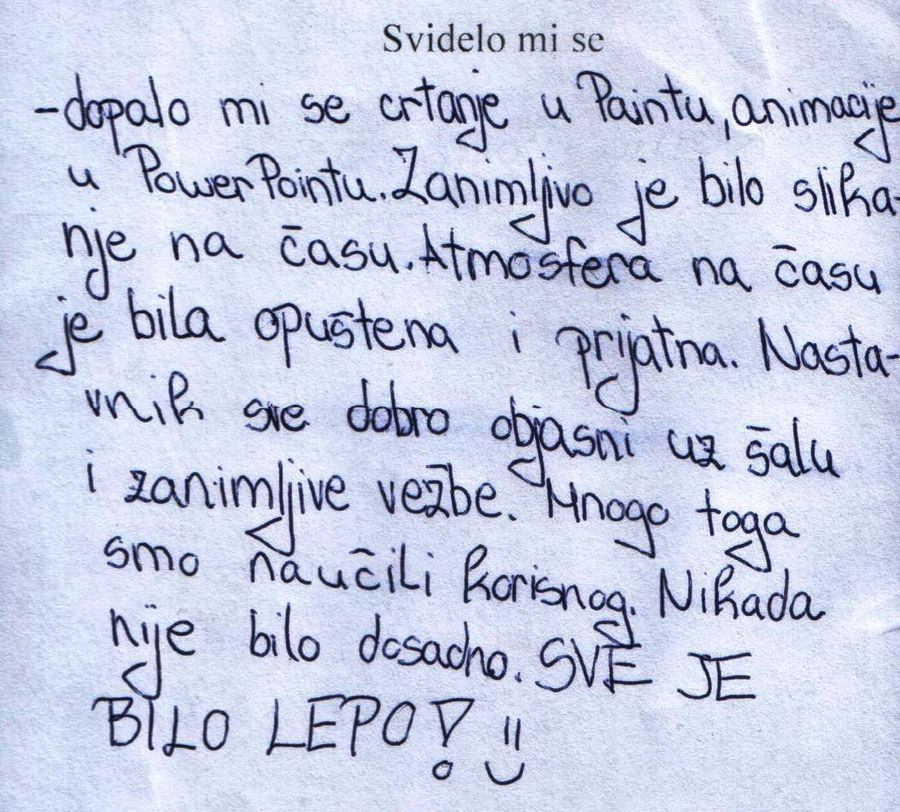 Svidelo mi se
-dopalo mi se crtanje u Paintu, animacije
u PowerPointu. Zanimljivo je bilo slika-
nje na času. Atmosfera na času
je bila opuštena i prijatna. Nasta-
vnik sve dobro objasni uz šalu
i zanimljive vežbe. Mnogo toga
smo naučili korisnog. Nikada
nije bilo dosadno. SVE JE
BILO LEPO! :)